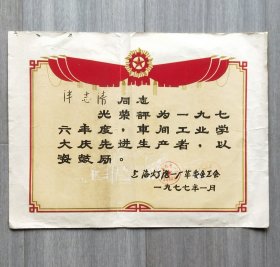 志清 同志
光荣評为一九七
六年度，車间工业学
大庆先进生产者，以
资鼓励。
上海灯泡一厂革委会工会
一九七七年一月